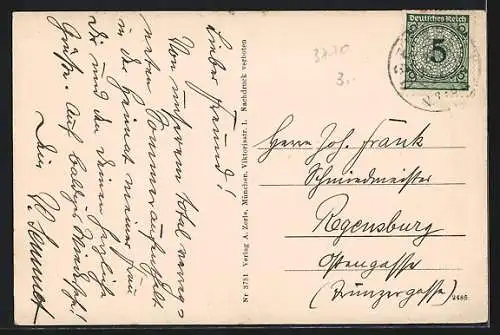 Lieber Freund!
Von unserem total verreg-
neten Sommeraufenthalt
in der Heimat meiner Frau
Dir und den Deinen herzliche
Grüße. Auf baldiges Wiederseh'n!
Dein
Nr 8731 Verlag A. Zerle, München, Viktoriastr. 1. Nachdruck verboten
37.10
3.-
Deutsches Reich
5
Herrn Joh. Frank
Schmiedmeister
Regensburg
Ostengasse
(Kunzergasse)